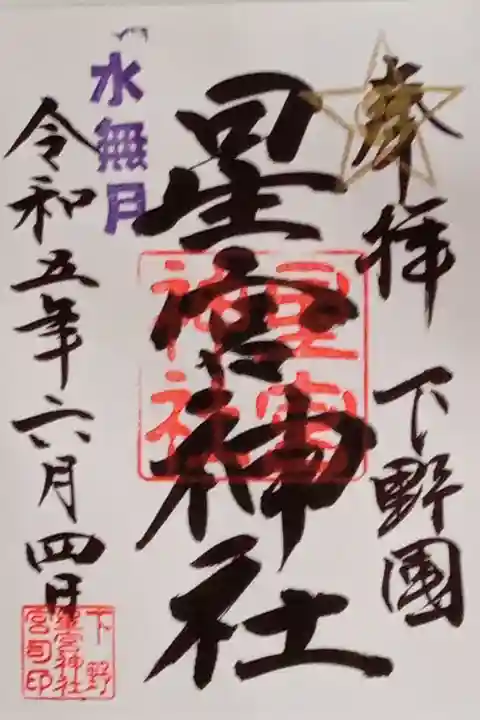 奉拝 下野國
星宮神社
星宮神社
水無月
令和五年六月四日
下野
星宮神社
宮司印